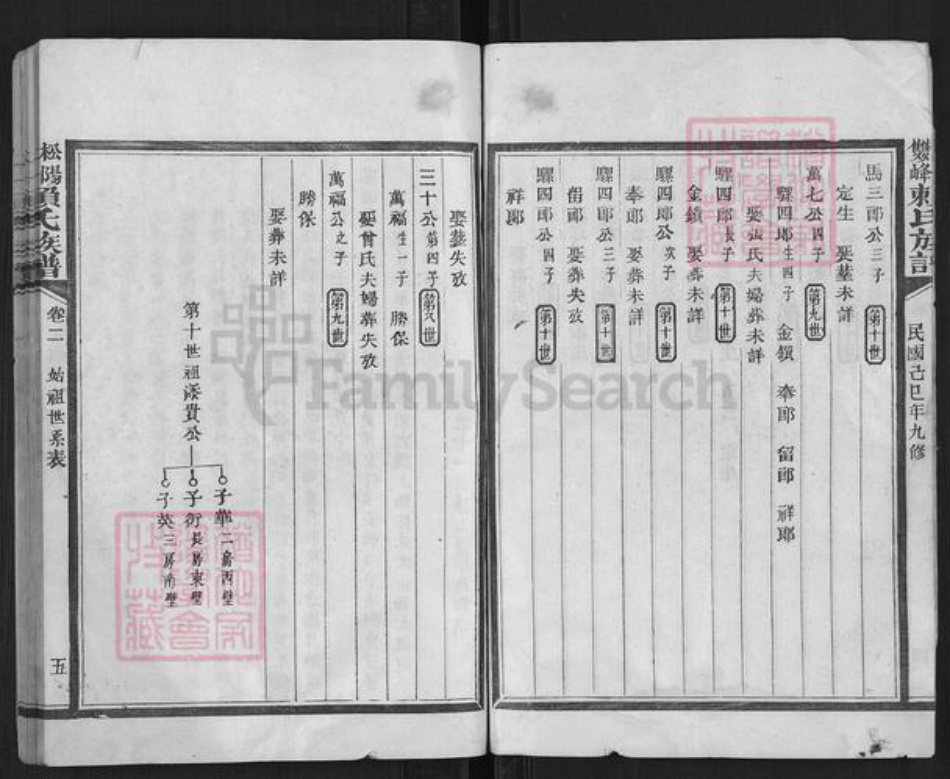 雙峰賴氏族譜
民國己巳年九修
馬三郎公三子 第十世
定生 娶塟未詳
萬七公四子 第九世
騾四郎生四子 金鎖 奉郎 留郎 祥郎
娶張氏夫婦葬未詳
騾四郎長子 第十世
金鎖 娶葬未詳
騾四郎公次子 第十世
奉郎 娶葬未詳
騾四郎公三子 第十世
留郎 娶葬失攷
騾四郎公四子 第十世
祥郎
娶塟失攷
三十公第四子 第八世
萬福生一子 勝保
娶曾氏夫婦葬失攷
萬福公之子 第九世
勝保
娶葬未詳
第十世祖 貴公
子華二房丙壁
子衍長房東壁
子英三房南壁
松陽賴氏族譜
卷二 始祖世系表
五
FamilySearch